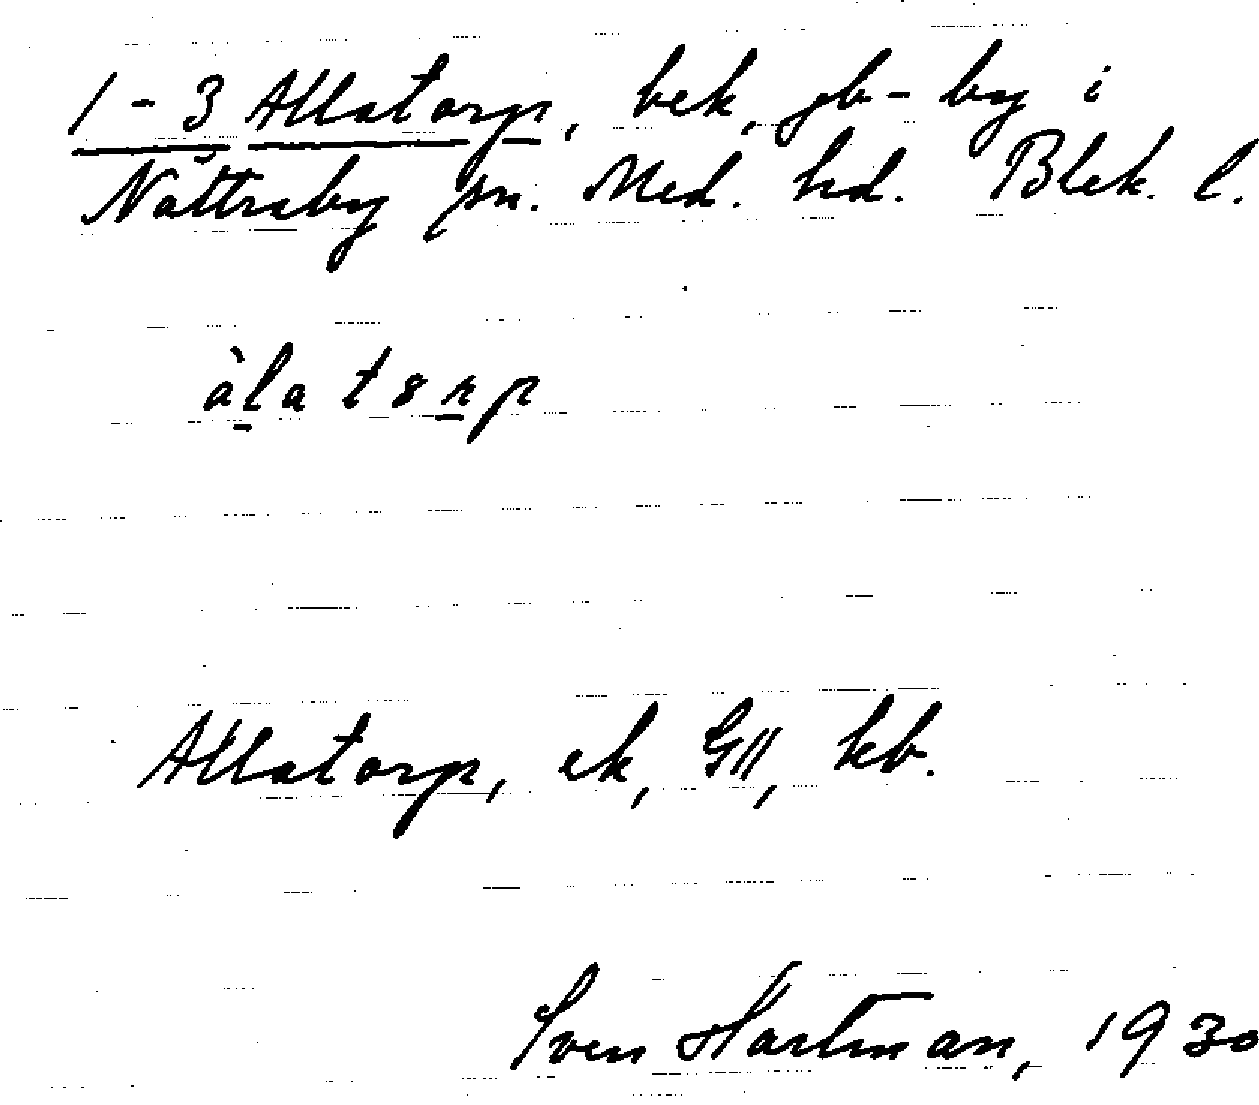 1-3 Allatorp, bek, jb-by i
Nättraby sn. Med. hd. Blek. l.
àla torp
Allatorp, ek, GII, kb.
Sven Hartman, 1930